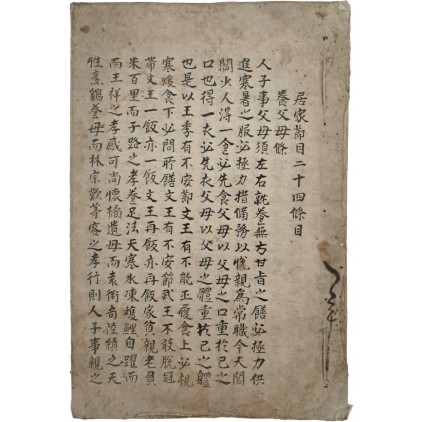 居家節目二十四條目
養父母條
人子事父母須左右就養無方甘旨之饍必極力供
進寒暑之服必極力措備務以悅親爲常職今夫閭
閻少人得一食必先食父母以父母之口重於己之
口也得一衣必先衣父母以父母之體重於己之軆
也是以王季有不安節文王有不能正履食上必視
寒煖食下必問所膳文王有不安節武王不敢脫冠
帶文王一飯亦一飯文王再飯亦再飯家貧親老負
米百里而子路之孝養足法天寒氷凍雙鯉自躍而
而王祥之孝感可尚懷橘遺母而袁術奇陸績之天
性烹鷄養母而林宗歎茅容之孝行則人子事親之